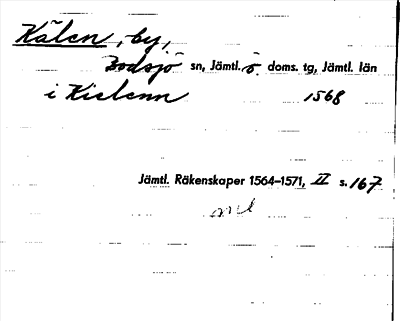 Kälen, by,
Bodsjö sn, Jämtl. ö. doms. tg, Jämtl. län
i Kielenn 1568
Jämtl. Räkenskaper 1564-1571, II s. 167